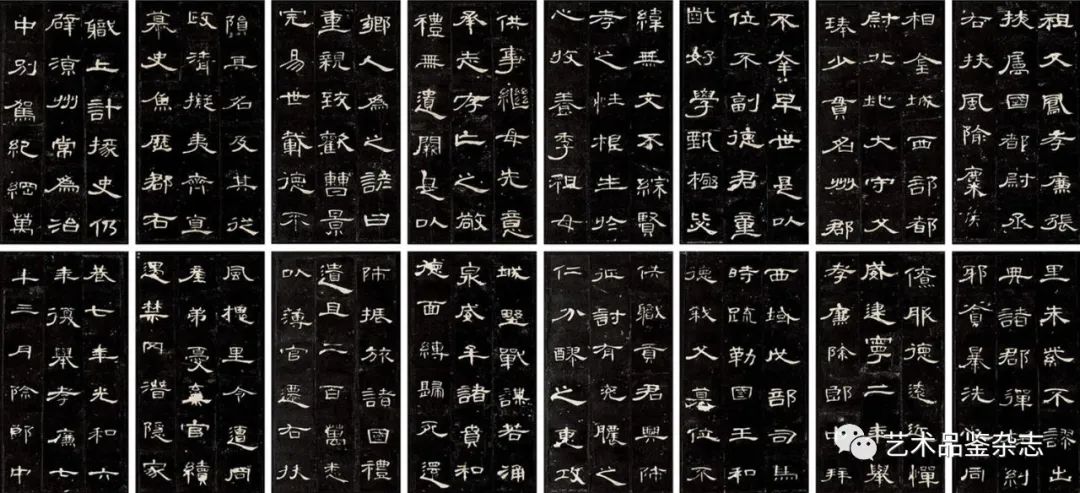 祖父鳳孝廉張
掖屬國都尉丞
右扶風隃麋侯
相金城西部都
尉北地大守父
琫少貫名州郡
不幸早世是以
位不副德君童
齔好學甄極毖
緯無文不綜賢
孝之性根生於
心收養季祖母
供事繼母先意
承志存亡之敬
禮無遺闕是以
鄉人為之諺曰
重親致歡曹景
完易世載德不
隕其名及其從
政清擬夷齊直
慕史魚歷郡右
職上計掾史仍
辟涼州常為治
中別駕紀綱萬
里朱紫不謬出
典諸郡彈糾
邪貪暴洗心同
僚服德遠近憚
威建寧二年舉
孝廉除郎中拜
西域戊部司馬
時疏勒國王和
德弒父篡位不
供職貢君興師
征討有兗膿之
仁分醪之惠攻
城野戰謀若涌
泉威牟諸賁和
德面縛歸死還
師振旅諸國禮
遺且二百萬悉
以薄官遷右扶
風槐里令遭同
產弟憂棄官續
遇禁冈潛隱家
巷七年光和六
年復舉孝廉七
年三月除郎中
艺术品鉴杂志